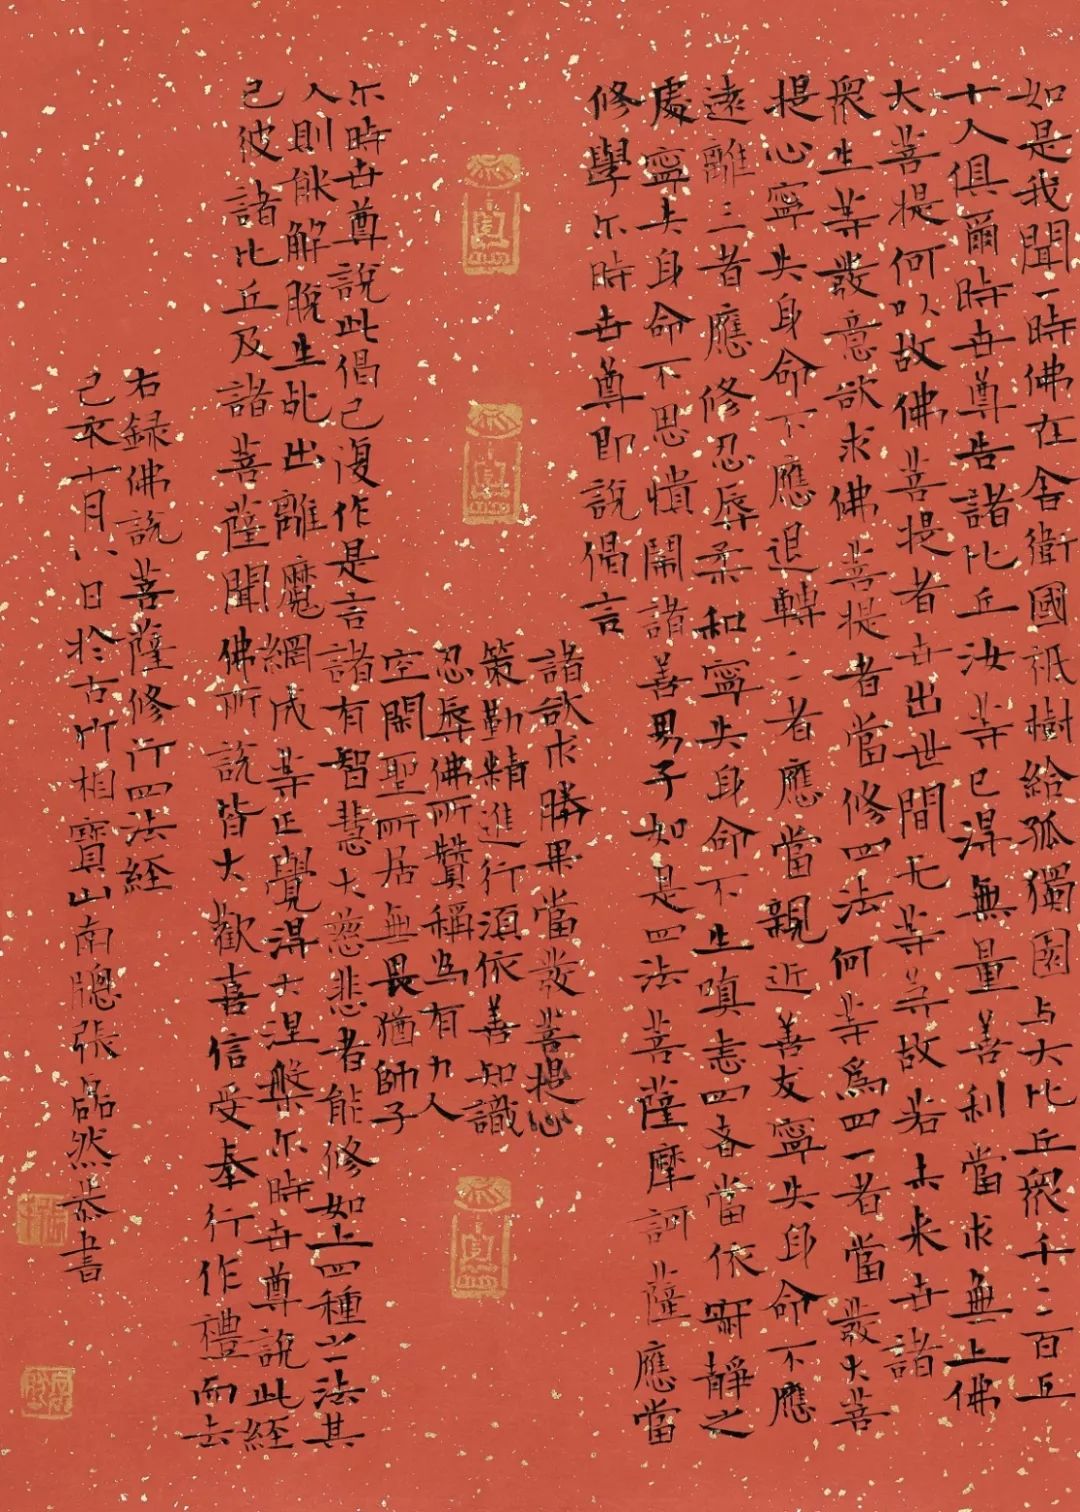 如是我聞一時佛在舍衛國祇樹給孤獨園与大比丘衆千二百五
十人俱爾時世尊告諸比丘汝等已得無量善利當求無上佛
大菩提何以故佛菩提者世出世間无等等故若未来世諸
衆生等發意欲求佛菩提者當修四法何等為四一者當發大菩
提心寧失身命不應退轉二者應當親近善友寧失身命不應
遠離三者應修忍辱柔和寧失身命不生嗔恚四者當依寂靜之
處寧失身命不思憒鬧諸善男子如是四法菩薩摩訶薩應當
修學尔時世尊即說偈言
諸欲求勝果當發菩提心
策勤精進行須依善知識
忍辱佛所贊稱為有力人
空閑聖所居無畏猶師子
尔時世尊說此偈已復作是言諸有智慧大慈悲者能修如上四種之法其
人則能解脫生死出離魔網成等正覺得大涅槃尔時世尊說此経
已彼諸比丘及諸菩薩聞佛所說皆大歡喜信受奉行作禮而去
右録佛說菩薩修行四法経
己亥十月八日於古竹相寶山南牕張磊然恭書